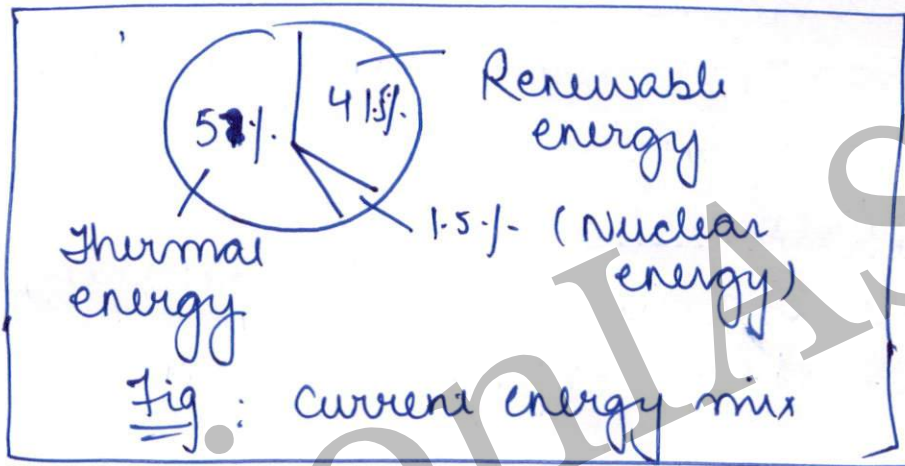 41.5%. Renewable
energy
1.5%. (Nuclear
energy)
Thermal
energy
Fig: Current energy mix